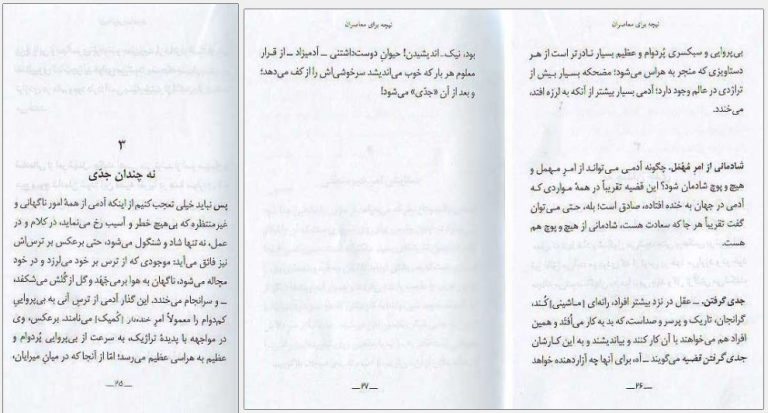 ۳
نه چندان جدّی
پس نباید خیلی تعجب کنیم از اینکه آدمی از همهٔ امور ناگهانی و
غیرمنتظره که بی‌هیچ خطر و آسیب رخ می‌نماید، در کلام و در
عمل، نه تنها شاد و شنگول می‌شود، حتی برعکس بر ترس‌اش
نیز فائق می‌آید: موجودی که از ترس بر خود می‌لرزد و در خود
مچاله می‌شود، ناگهان به هوا برمی‌جَهَد و گل از گُلش می‌شکفد،
ــ و سرانجام می‌خندد. این گذار آدمی از ترسِ آنی به بی‌پرواییِ
کم‌دوام را معمولاً امرِ خنده‌دار [کمیک] می‌نامند. برعکس، وی
در مواجهه با پدیدهٔ تراژیک، به سرعت از بی‌پروایی پُردوام و
عظیم به هراسی عظیم می‌رسد؛ امّا از آنجا که در میانِ میرایان،
ــ۲۵ــ
نیچه برای معاصران
بی‌پروایی و سبکسری پُردوام و عظیم بسیار نادرتر است از هر
دستاویزی که منجر به هراس می‌شود؛ مضحکه بسیار بیش از
تراژدی در عالم وجود دارد؛ آدمی بسیار بیشتر از آنکه به لرزه افتد،
می‌خندد.
شادمانی از امرِ مُهْمَل. چگونه آدمی می‌تواند از امرِ مهمل و
هیچ و پوچ شادمان شود؟ این قضیه تقریباً در همهٔ مواردی که
آدمی در جهان به خنده افتاده، صادق است؛ بله، حتی می‌توان
گفت تقریباً هر جا که سعادت هست، شادمانی از هیچ و پوچ هم
هست.
جدی گرفتن. ــ عقل در نزد بیشتر افراد، رانه‌ای [ماشینی] کُند،
گرانجان، تاریک و پرسر و صداست، که بد به کار می‌اُفتَد و همین
افراد هم می‌خواهند با آن کار کنند و بیاندیشند و به این کارشان
جدی گرفتن قضیه می‌گویند ــ آه، برای آنها چه آزاردهنده خواهد
ــ۲۶ــ
نیچه برای معاصران
بود، نیک‌ـ‌اندیشیدن! حیوان دوست‌داشتنی ــ آدمیزاد ــ از قرار
معلوم هر بار که خوب می‌اندیشد سرخوشی‌اش را از کف می‌دهد؛
و بعد از آن «جدّی» می‌شود!
ــ۲۷ــ